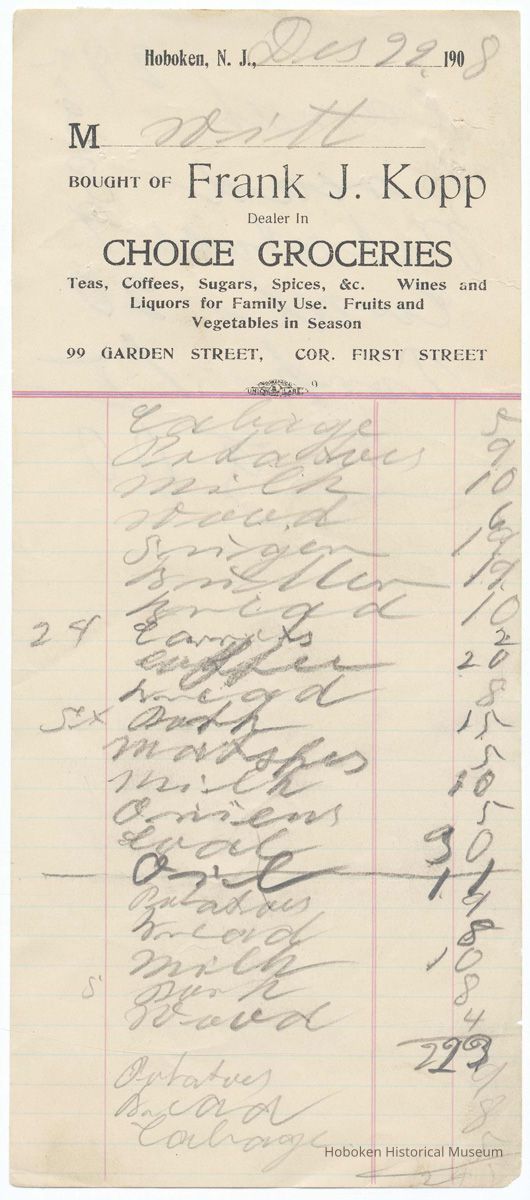 Hoboken, N. J., Dec 22 1908
M Witt
BOUGHT OF Frank J. Kopp
Dealer In
CHOICE GROCERIES
Teas, Coffees, Sugars, Spices, &c. Wines and
Liquors for Family Use. Fruits and
Vegetables in Season
99 GARDEN STREET, COR. FIRST STREET
9
Cabage 5
Potatoes 9
Milk 10
Wood 6
19
12
Bread 10
24 Carrots 2
Coffee 20
Bread 8
15
Matshes 5
Milk 10
Oniens 5
Coal
Oil 11
Potatoes 9
Bread 8
Milk 10
8
Wood 4
Potatoes
Bread 8
Cabage
Hoboken Historical Museum